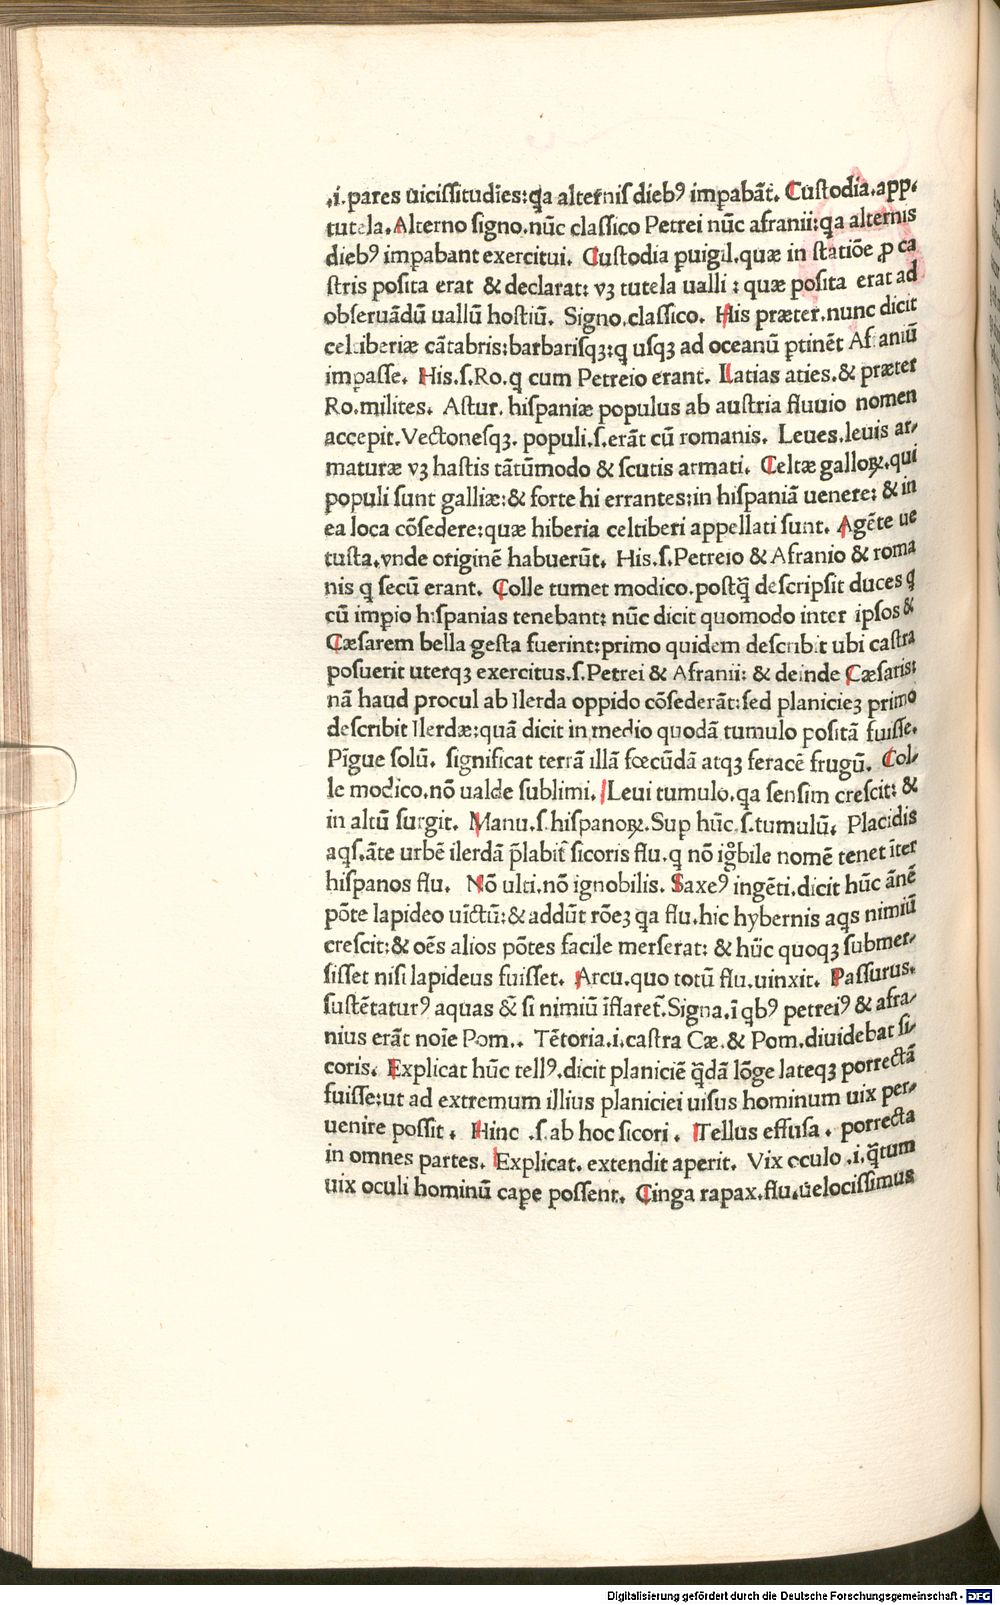 .i. pares uicissitudies:qa alternis dieb⁹ imꝑabāt. Custodia.app.
tutela. Alterno signo.nūc classico Petrei nūc afranii:qa alternis
dieb⁹ imꝑabant exercitui. Custodia ꝑuigil.quæ in statiōe ꝓ ca
stris posita erat & declarat: vꝫ tutela ualli : quæ posita erat ad
obseruādū uallū hostiū. Signo.classico. His præter.nunc dicit
celtiberiæ cātabris:barbarisqꝫ:q usqꝫ ad oceanū ꝑtinēt Afraniū
imꝑasse. His.s.Ro.q cum Petreio erant. Latias aties.& præter
Ro.milites. Astur. hispaniæ populus ab austria fluuio nomen
accepit.Vectonesqꝫ. populi.s.erāt cū romanis. Leues.leuis ar-
maturæ vꝫ hastis tātūmodo & scutis armati. Celtæ galloꝝ.qui
populi sunt galliæ:& forte hi errantes:in hispaniā uenere: & in
ea loca cōsedere:quæ hiberia celtiberi appellati sunt. Agēte ue
tusta.vnde originē habuerūt. His.s.Petreio & Afranio & roma
nis q secū erant. Colle tumet modico.postq̄ descripsit duces q
cū imꝑio hispanias tenebant: nūc dicit quomodo inter ipsos &
Cæsarem bella gesta fuerint:primo quidem describit ubi castra
posuerit uterqꝫ exercitus.s.Petrei & Afranii: & deinde Cæsaris:
nā haud procul ab Ilerda oppido cōsederāt:sed planicieꝫ primo
describit Ilerdæ:quā dicit in medio quodā tumulo positā fuisse.
Pīgue solū. significat terrā illā fœcūdā atqꝫ feracē frugū. Col-
le modico.nō ualde sublimi. Leui tumulo.qa sensim crescit: &
in altū surgit. Manu.s.hispanoꝝ.Sup hūc.s.tumulū. Placidis
aqs.āte urbē ilerdā p̄labit̄ sicoris flu.q nō ig̊bile nomē tenet īter
hispanos flu. Nō ulti.nō ignobilis. Saxe⁹ ingēti.dicit hūc ānē
pōte lapideo uīctū:& addūt rōeꝫ qa flu.hic hybernis aqs nimiū
crescit:& oēs alios pōtes facile merserat: & hūc quoqꝫ submer-
sisset nisi lapideus fuisset. Arcu.quo totū flu.uinxit. Passurus.
sustētatur⁹ aquas & si nimiū īflaret̄.Signa.ī qb⁹ petrei⁹ & afra-
nius erāt noīe Pom.. Tētoria.i.castra Cæ.& Pom.diuidebat si-
coris. Explicat hūc tell⁹.dicit planiciē q̄dā lōge lateqꝫ porrectā
fuisse:ut ad extremum illius planiciei uisus hominum uix per-
uenire possit. Hinc .s.ab hoc sicori. Tellus effusa. porrecta
in omnes partes. Explicat. extendit aperit. Vix oculo .i.q̄tum
uix oculi hominū caꝑe possent. Cinga rapax.flu.uelocissimus
Digitalisierung gefördert durch die Deutsche Forschungsgemeinschaft - DFG